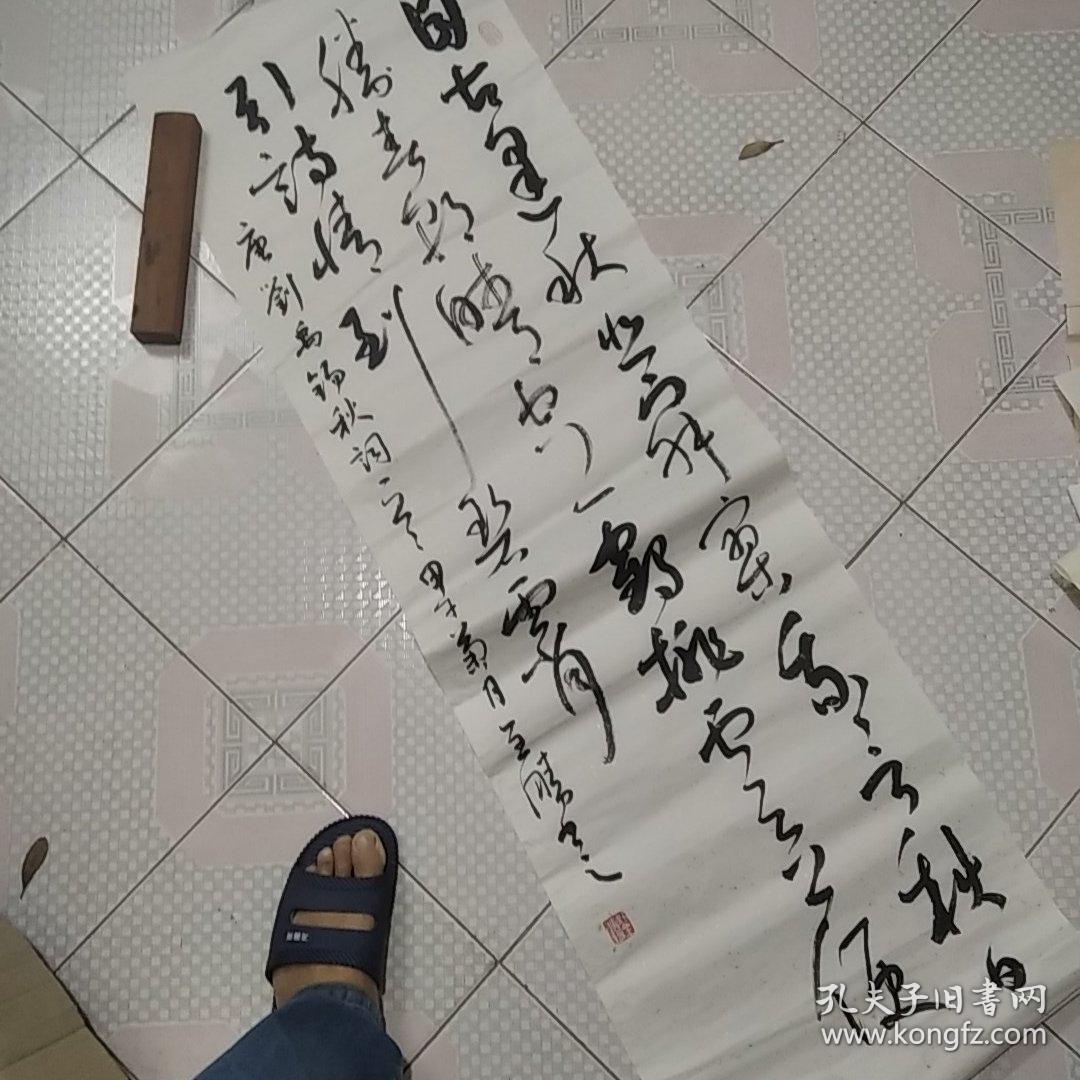 自古逢秋悲寂寥我言秋日
勝春朝晴空一鶴排雲上便
引詩情到碧霄
唐劉禹錫秋詞一首甲午菊月
孔夫子旧書网
www.kongfz.com